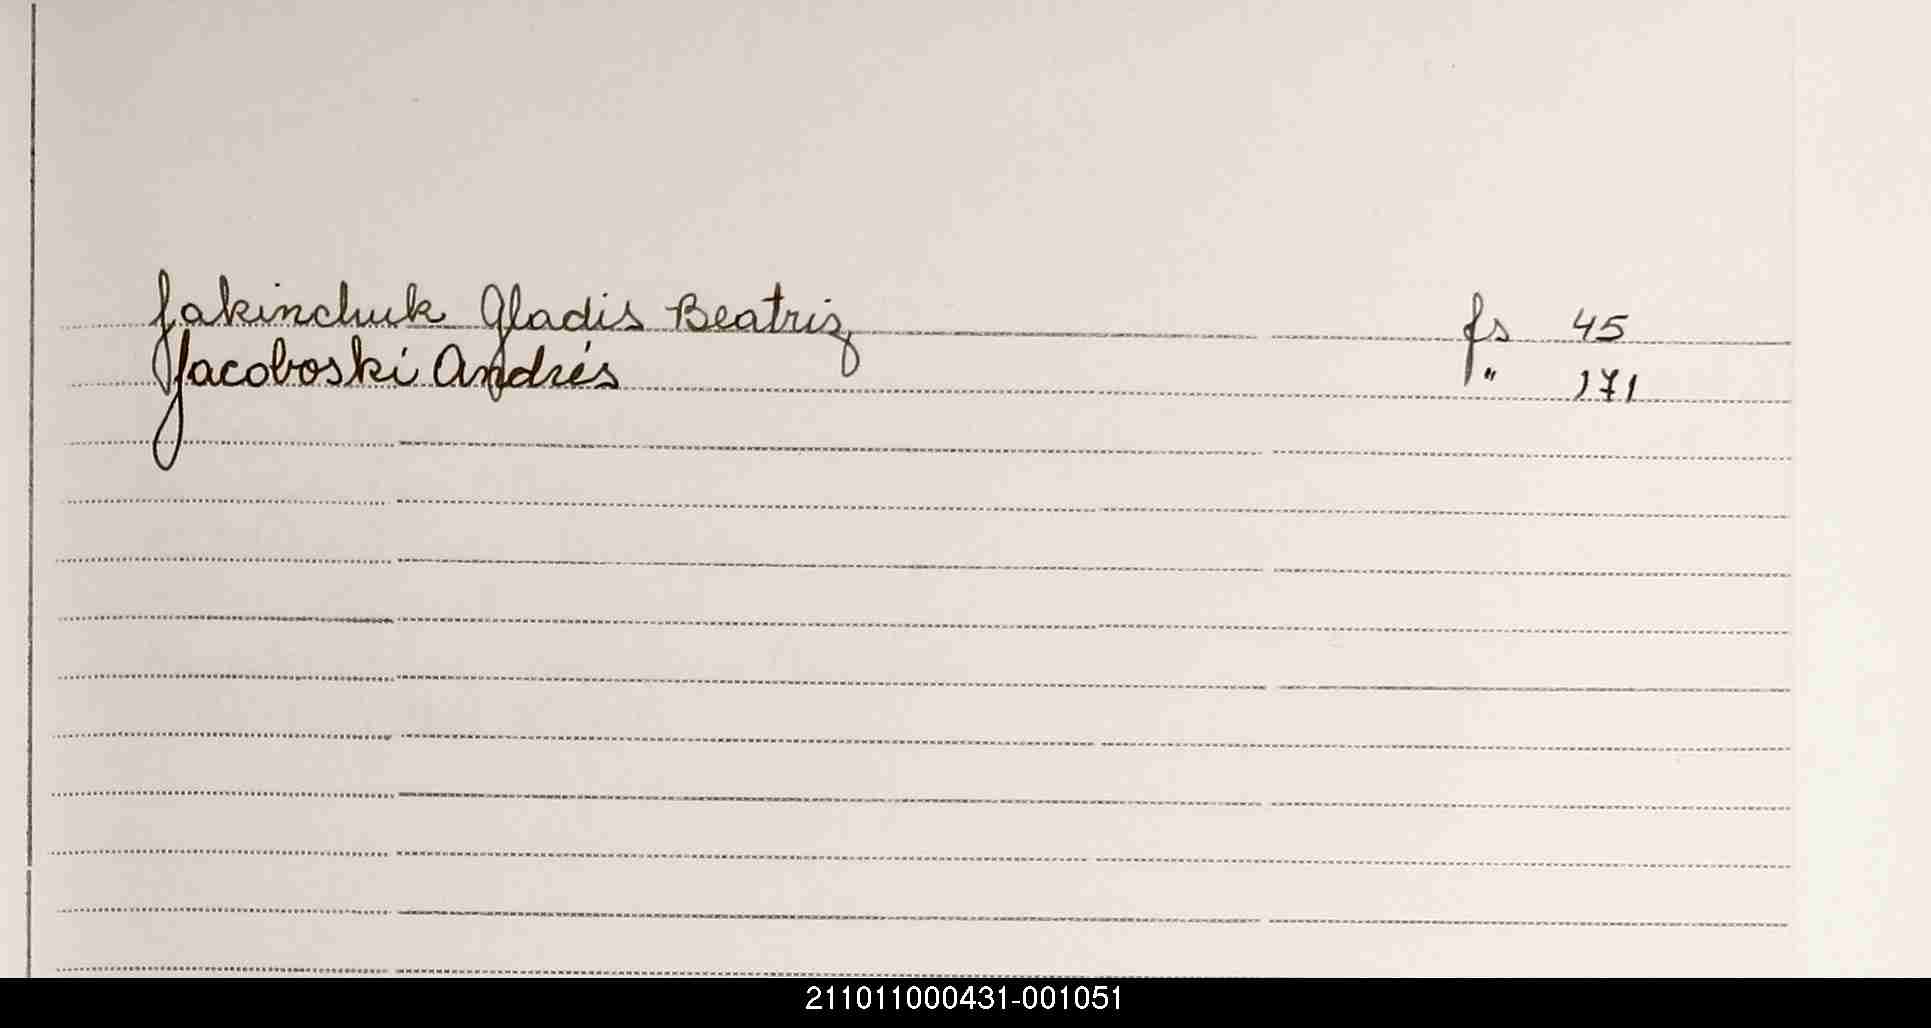 Jakinchuk Gladis Beatriz fs 45
Jacoboski Andrés " 171
211011000431-001051